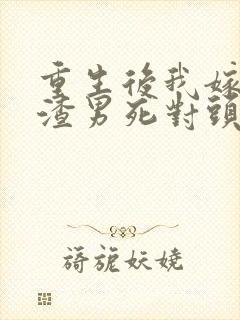 重生後我嫁
渣男死對頭
旖旎妖嬈